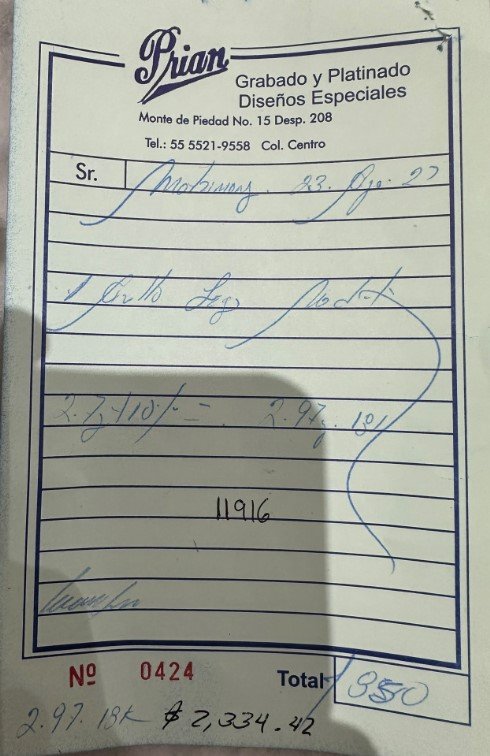 Prian
Grabado y Platinado
Diseños Especiales
Monte de Piedad No. 15 Desp. 208
Tel.: 55 5521-9558 Col. Centro
Sr. 23. Ago. 23
1
2.7g +10% = 2.97g. 18k
11916
Nº 0424 Total 350
2.97. 18K $ 2,334.42